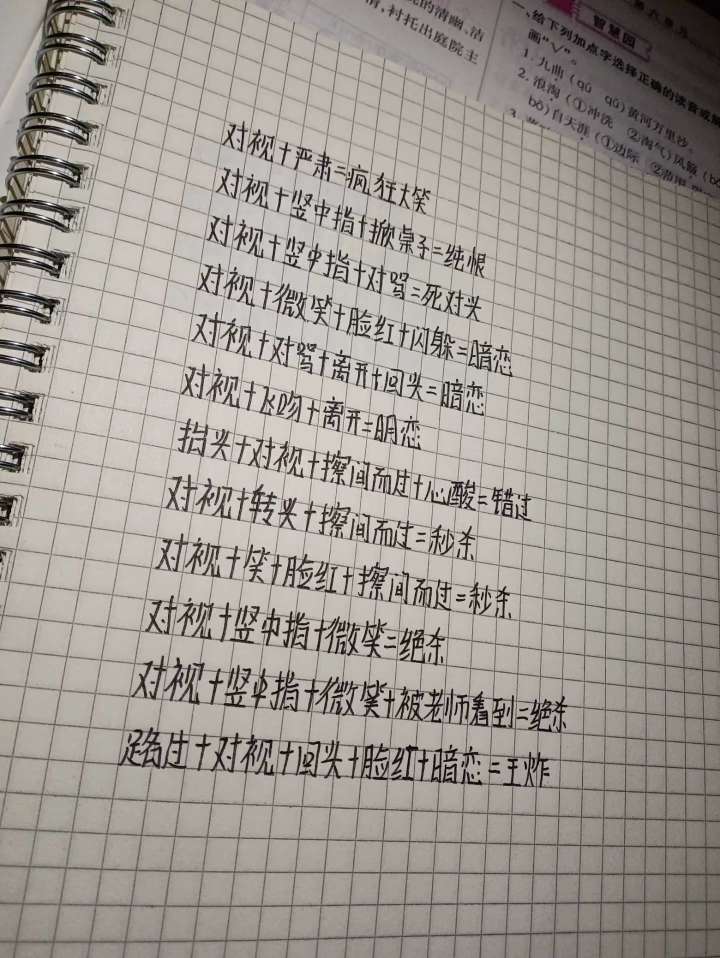 的清幽、洁
情,衬托出庭院主
智慧园
一、给下列加点字选择正确的读音或
画“√”。
1. 九曲(qū qǔ)黄河万里沙。
2. 浪淘(①冲洗 ②淘气)风簸(bǒ
bò)自天涯(①边际
对视+严肃=疯狂大笑
对视+竖中指+掀桌子=纯恨
对视+竖中指+对骂=死对头
对视+微笑+脸红+闪躲=暗恋
对视+对骂+离开+回头=暗恋
对视+飞吻+离开=明恋
抬头+对视+擦间而过+心酸=错过
对视+转头+擦间而过=秒杀
对视+笑+脸红+擦间而过=秒杀
对视+竖中指+微笑=绝杀
对视+竖中指+微笑+被老师看到=绝杀
路过+对视+回头+脸红+暗恋=王炸